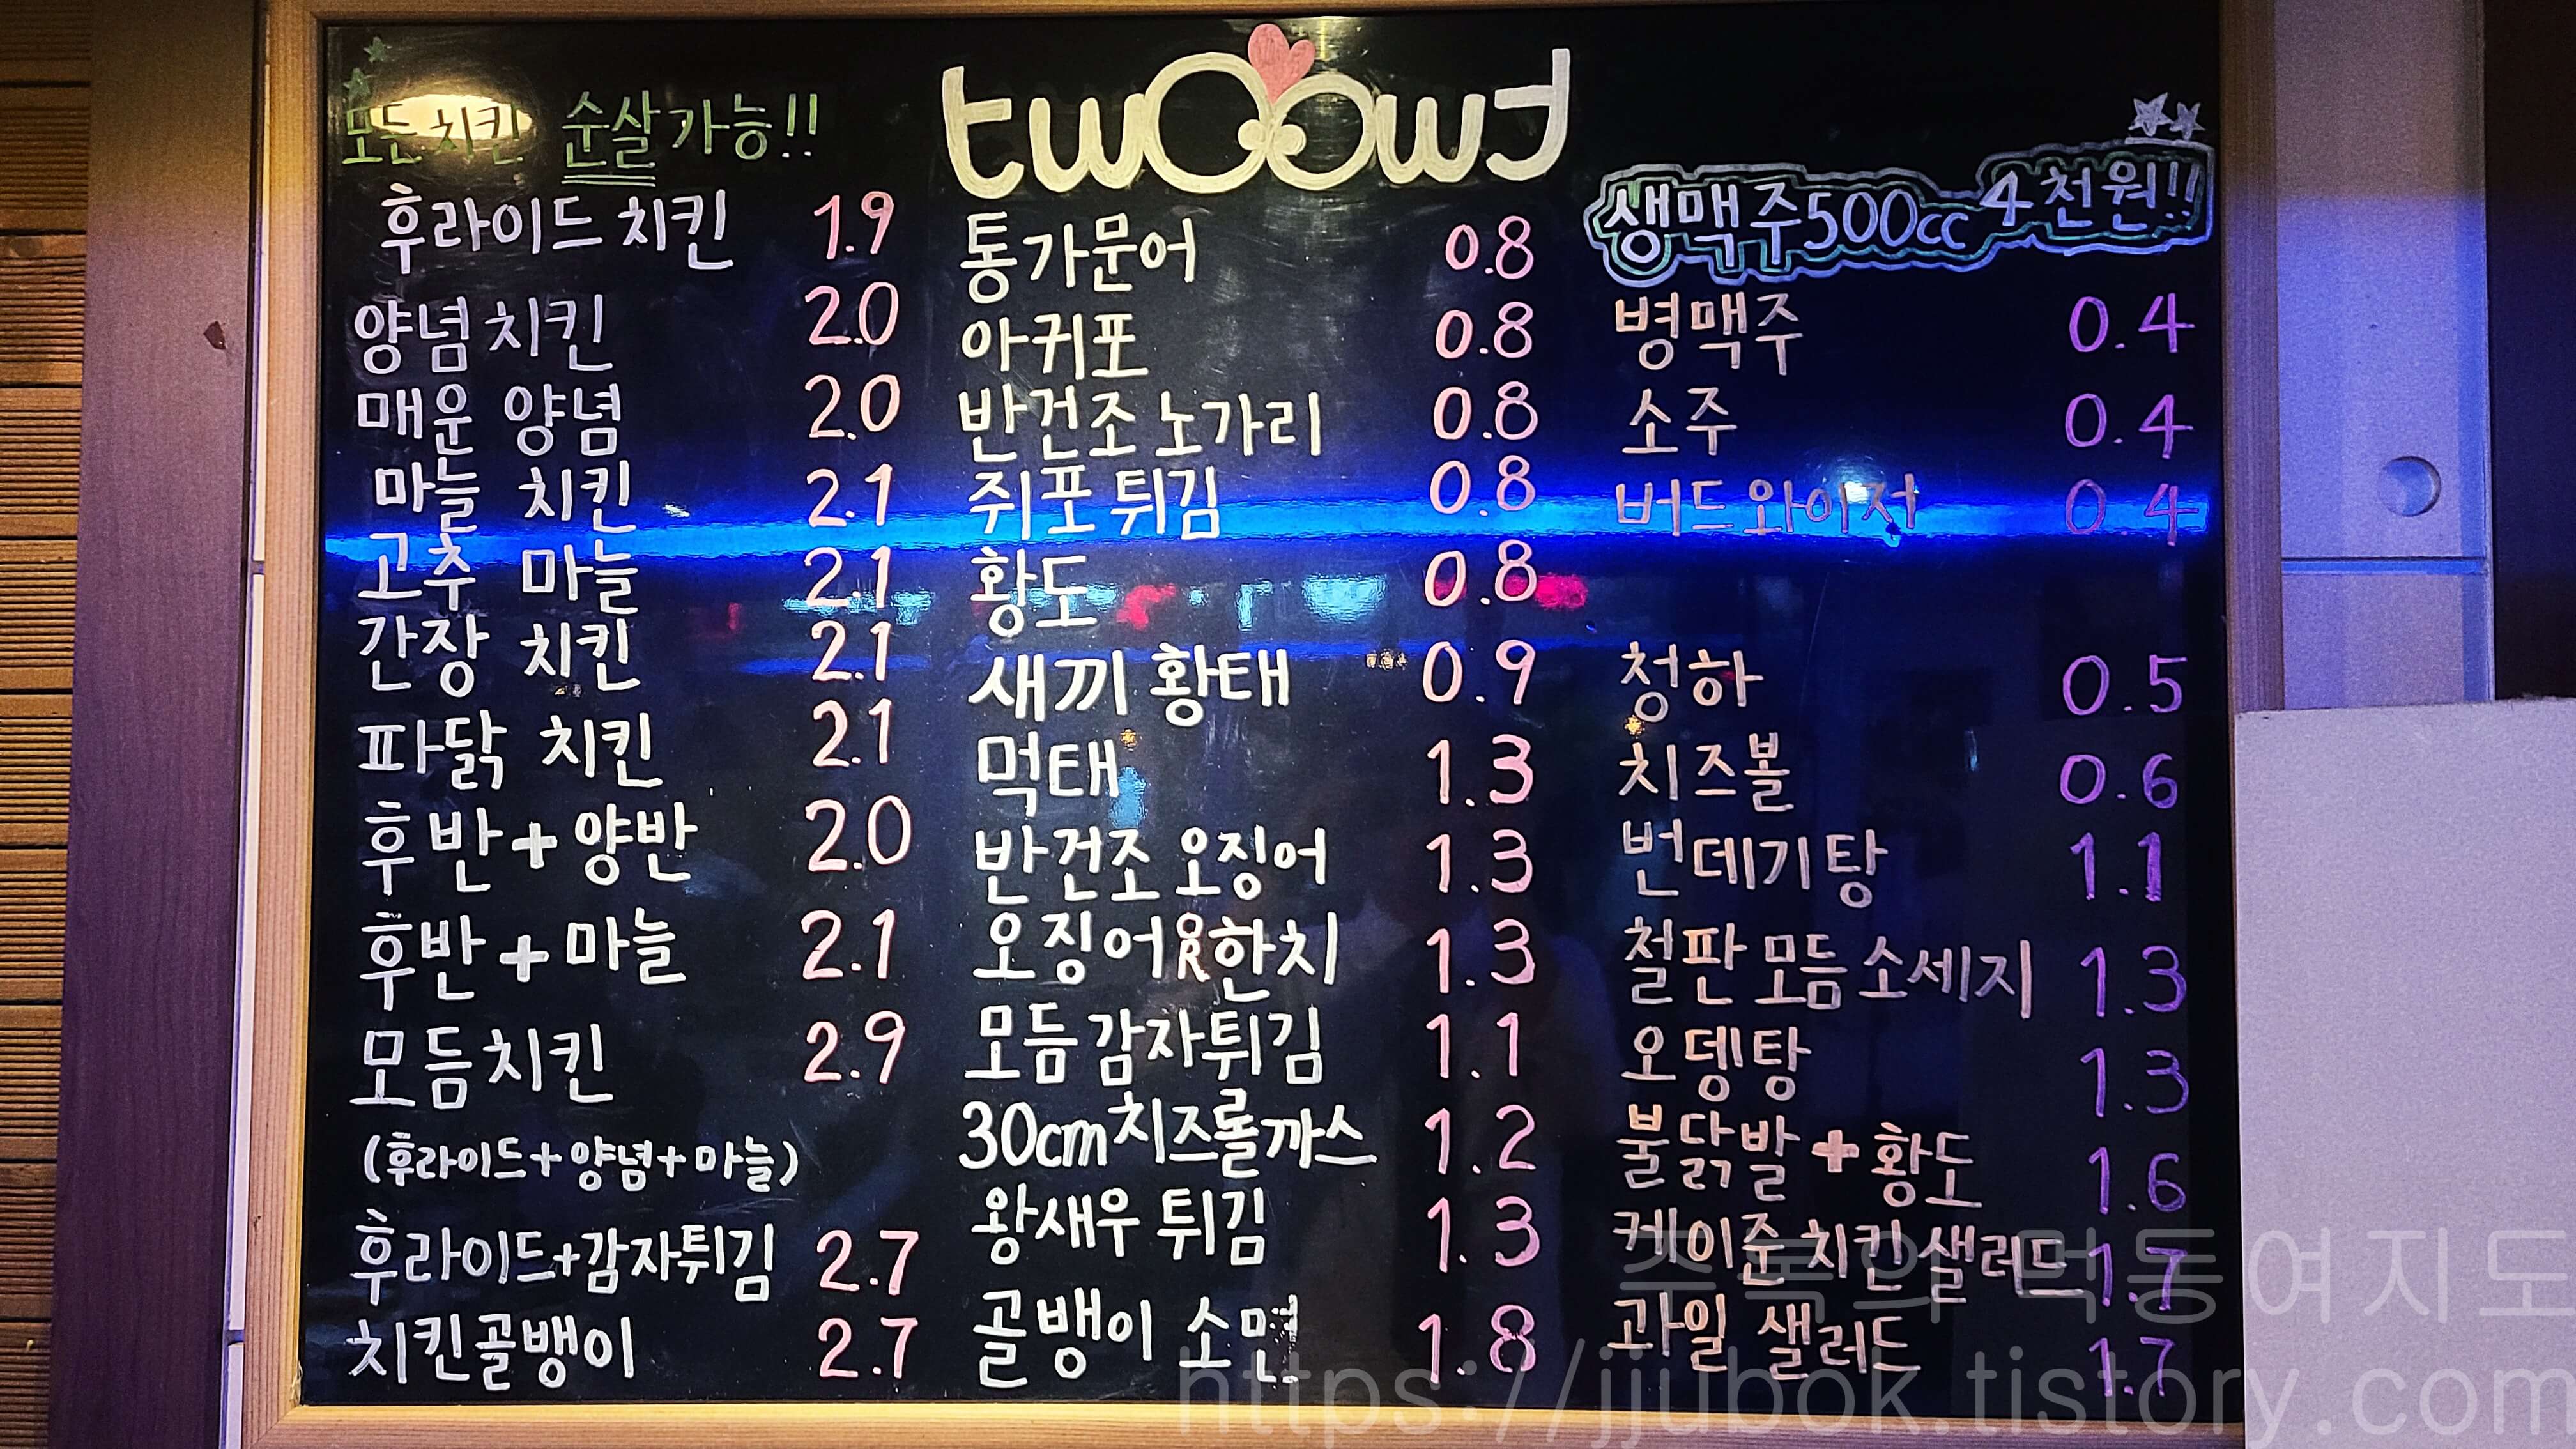 모든 치킨 순살 가능!!
후라이드 치킨 1.9
양념 치킨 2.0
매운 양념 2.0
마늘 치킨 2.1
고추 마늘 2.1
간장 치킨 2.1
파닭 치킨 2.1
후반+양반 2.0
후반+마늘 2.1
모듬치킨 2.9
(후라이드+양념+마늘)
후라이드+감자튀김 2.7
치킨골뱅이 2.7
통가문어 0.8
아귀포 0.8
반건조 노가리 0.8
쥐포 튀김 0.8
황도 0.8
새끼 황태 0.9
먹태 1.3
반건조 오징어 1.3
오징어OR한치 1.3
모듬감자튀김 1.1
30cm치즈롤까스 1.2
왕새우 튀김 1.3
골뱅이 소면 1.8
생맥주500cc 4천원!!
병맥주 0.4
소주 0.4
버드와이저 0.4
청하 0.5
치즈볼 0.6
번데기탕 1.1
철판모듬소세지 1.3
오뎅탕 1.3
불닭발+황도 1.6
케이준치킨샐러드 1.7
과일 샐러드 1.7
주복의 먹동여지도
https://jjubok.tistory.com